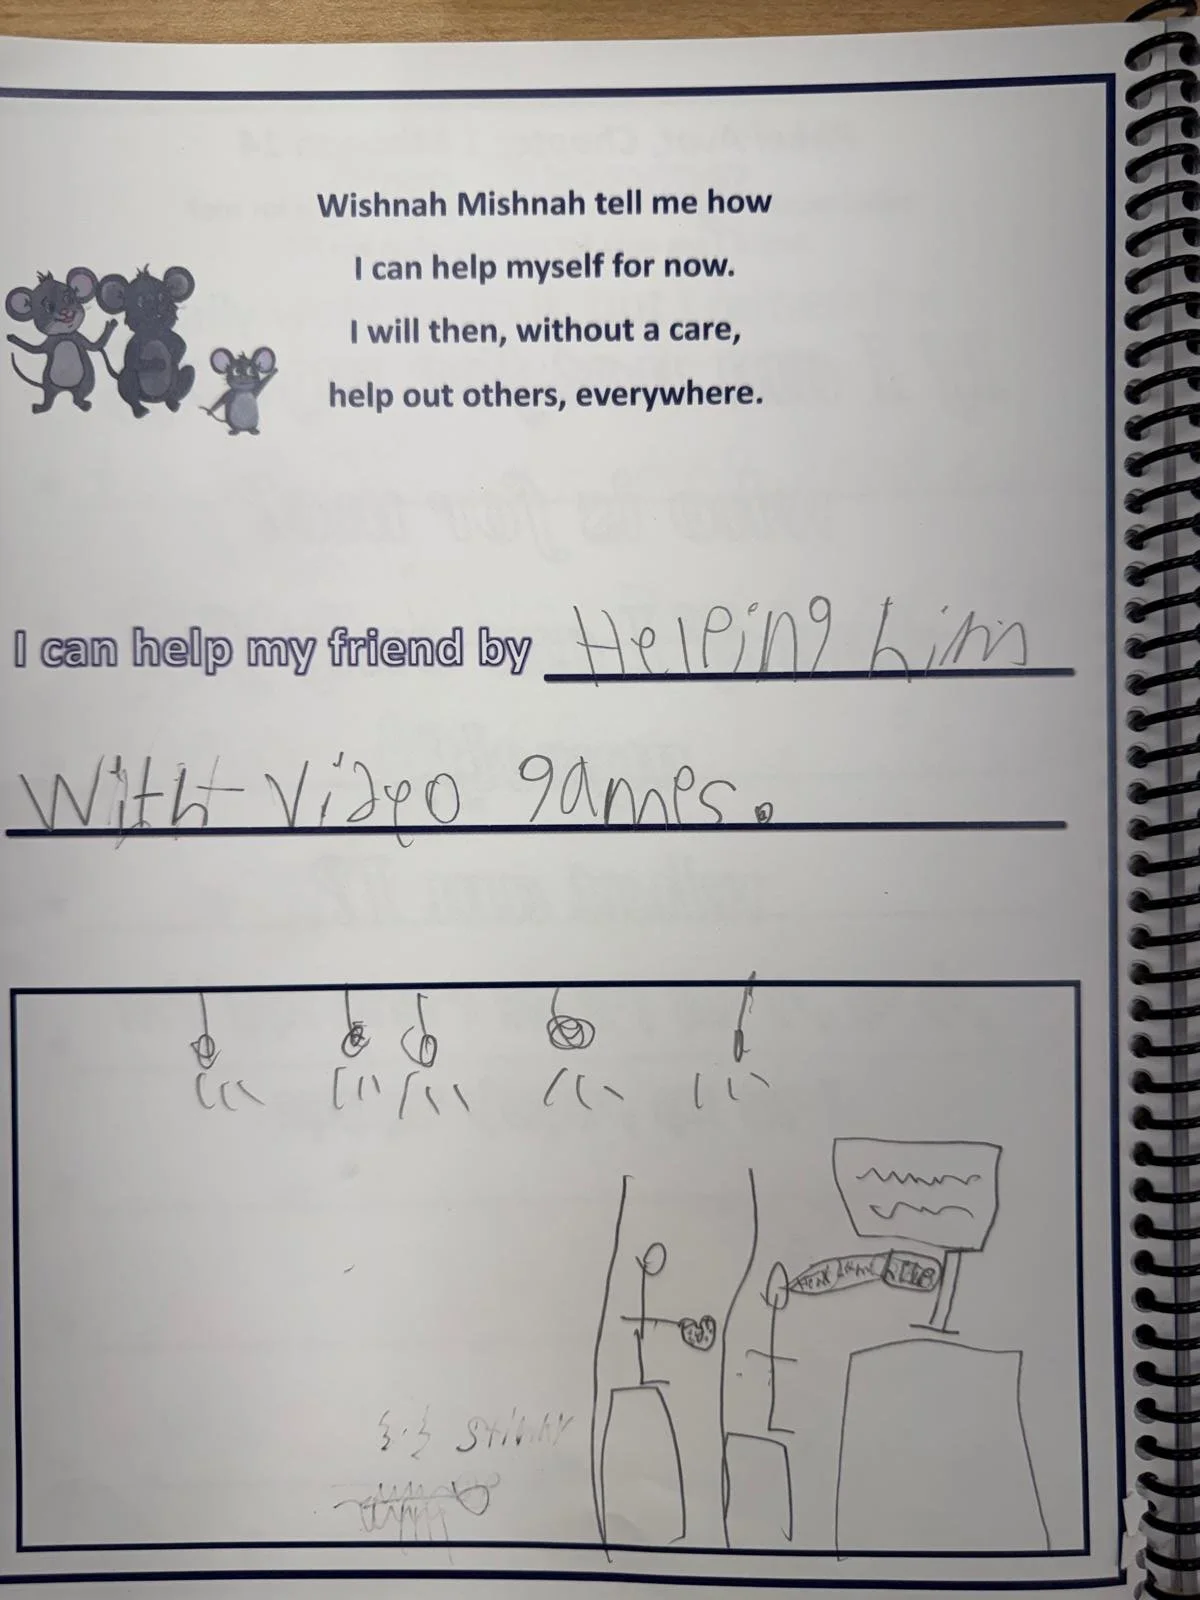 Wishnah Mishnah tell me how
I can help myself for now.
I will then, without a care,
help out others, everywhere.
I can help my friend by Helping him
With video games.
Stinky